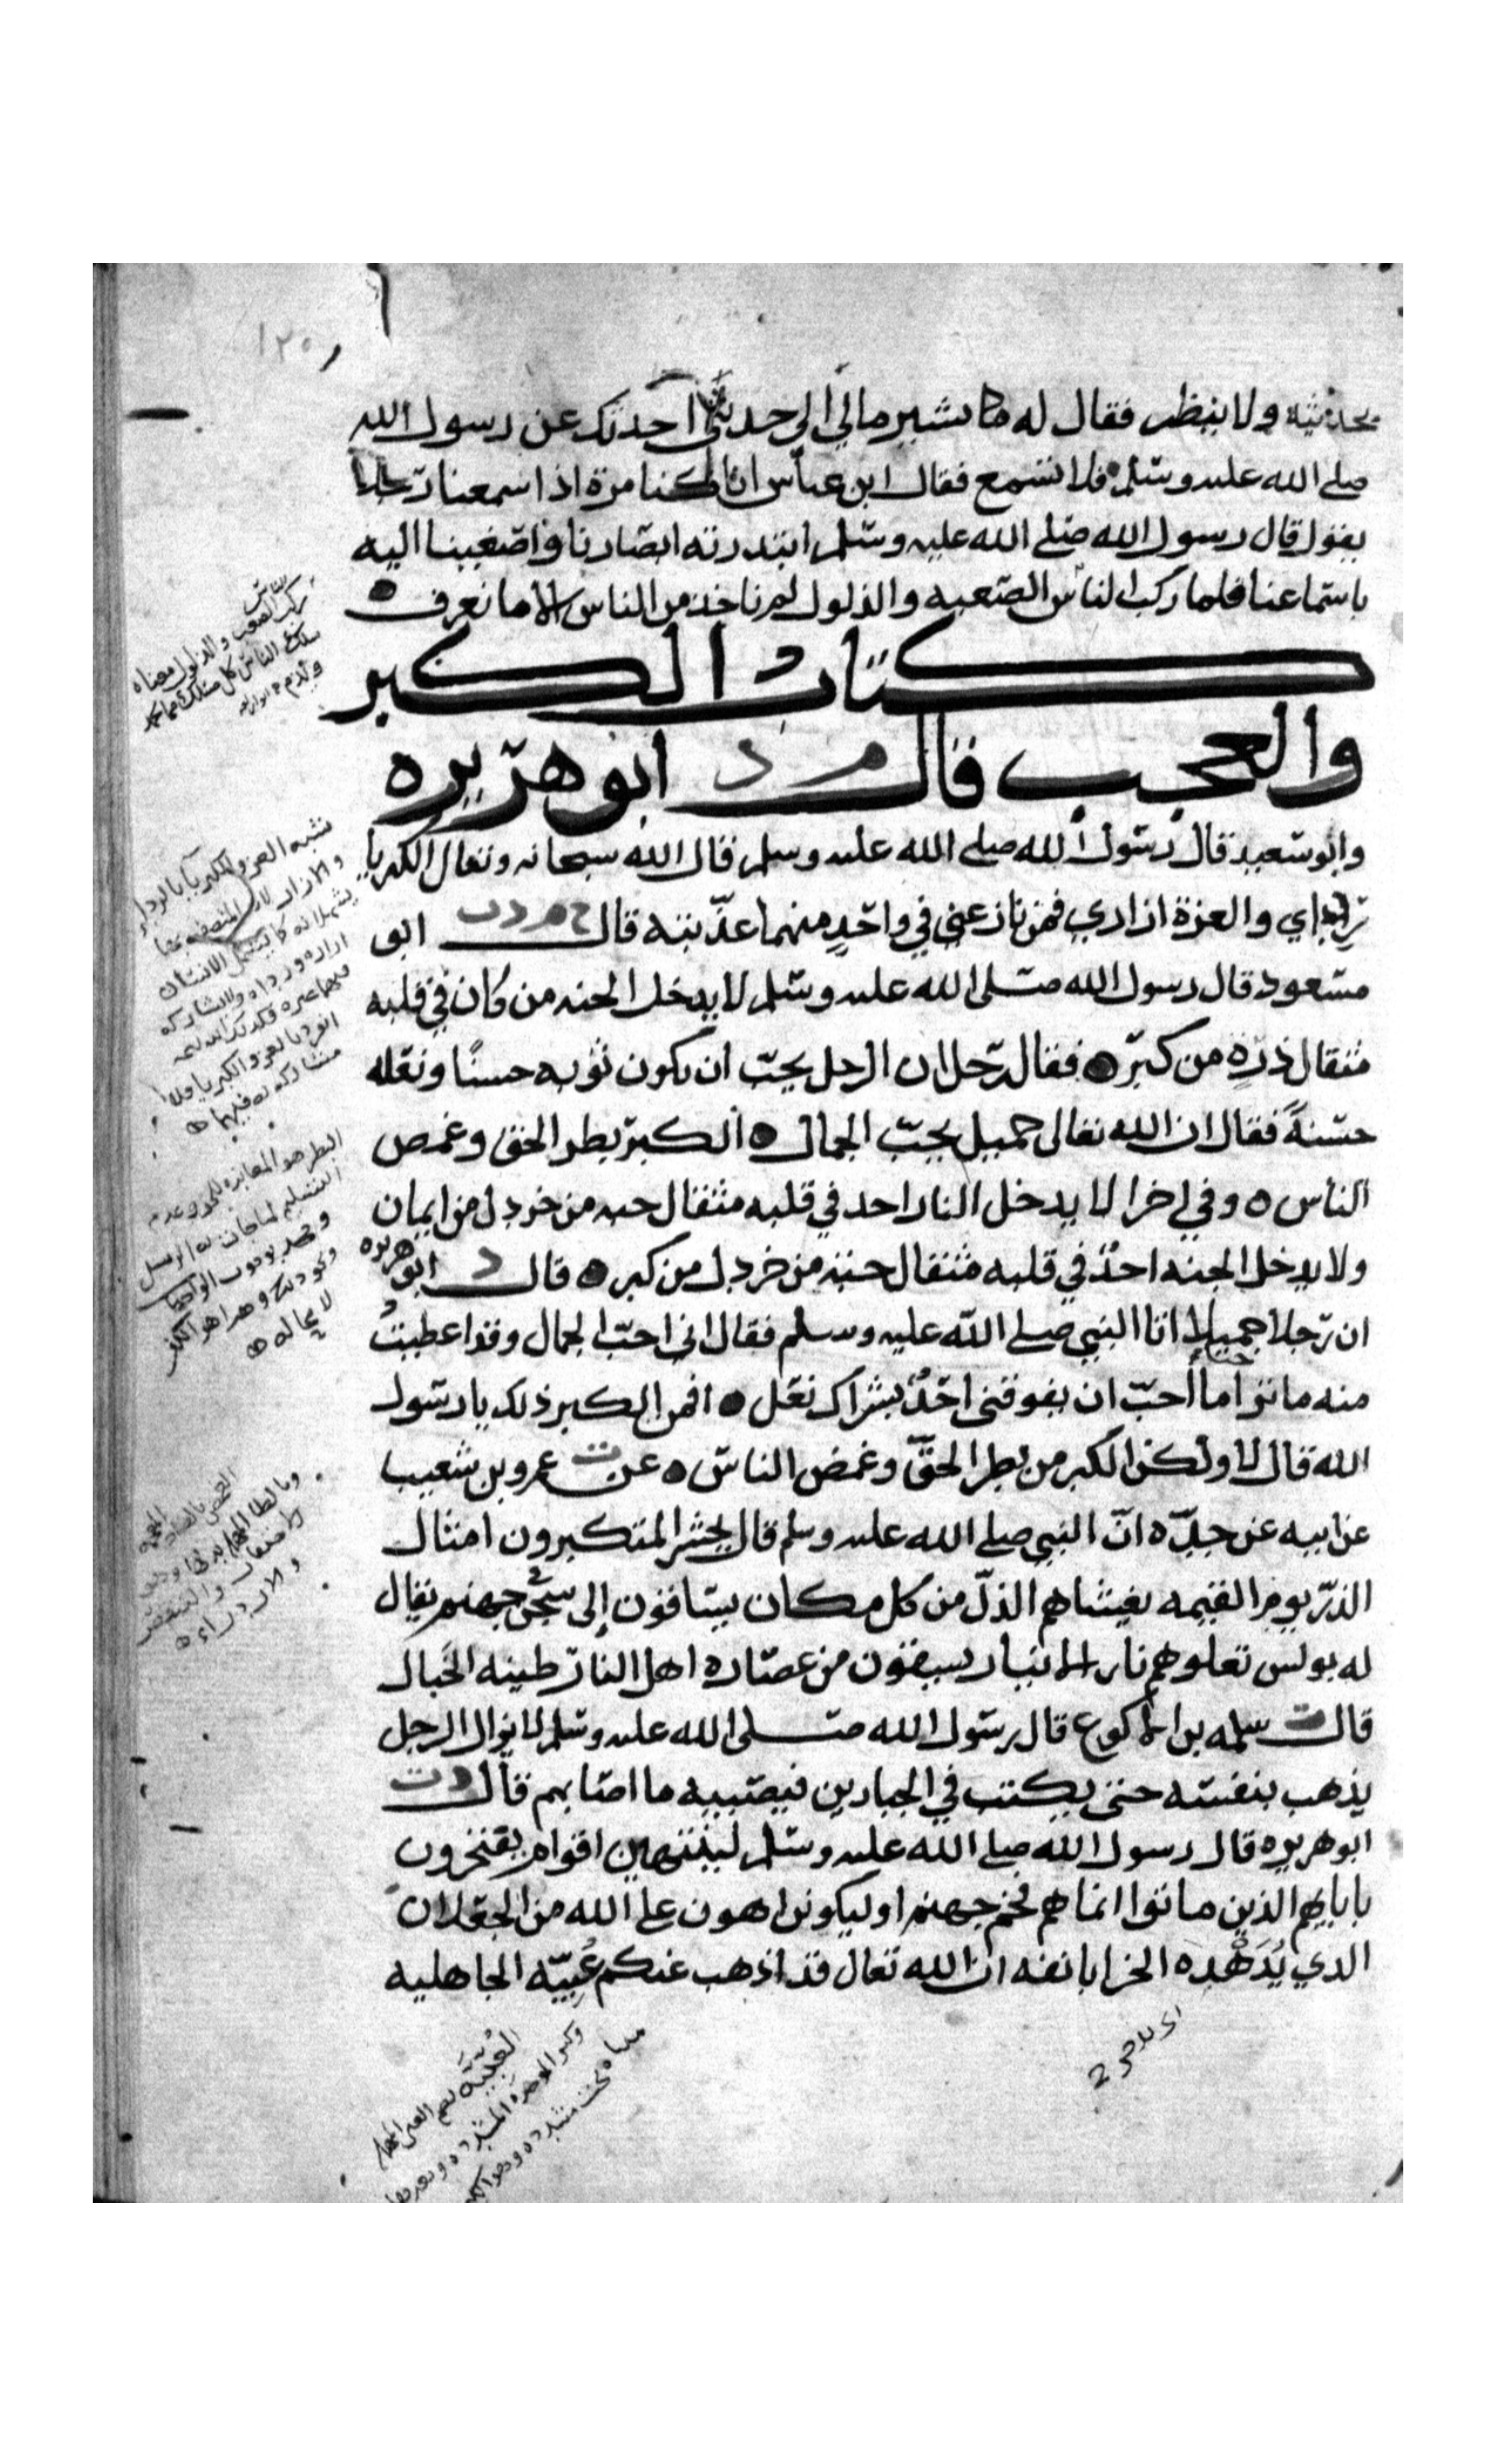 ١٢٠
بحديثه ولا ينظر فقال له ما بشير مالي الي حديثي احدثك عن رسول الله
صلى الله عليه وسلم فلا تسمع فقال ابن عباس انا كنا مرة اذا سمعنا رجلا
يقول قال رسول الله صلى الله عليه وسلم ابتدرته ابصارنا واصغينا اليه
باسماعنا فلما ركب الناس الصعبه والذلول لم ناخذ من الناس الا ما نعرف
كتاب الكبر
والعجب قال م د ابو هريره
وابو سعيد قال رسول الله صلى الله عليه وسلم قال الله سبحانه وتعالى الكبريا
ردائي والعزة ازاري فمن نازعني في واحد منهما عذبته قال م د ت ابن
مسعود قال رسول الله صلى الله عليه وسلم لا يدخل الجنه من كان في قلبه
مثقال ذره من كبر فقال رجل ان الرجل يحب ان يكون ثوبه حسنا ونعله
حسنة فقال ان الله تعالى جميل يحب الجمال الكبر بطر الحق وغمص
الناس وفي اخرا لا يدخل النار احد في قلبه مثقال حبه من خردل من ايمان
ولا يدخل الجنه احد في قلبه مثقال حبه من خردل من كبر قال د ابو هريره
ان رجلا جميلا اتا النبي صلى الله عليه وسلم فقال اني احب الجمال وقد اعطيت
منه ما ترا ما احب ان يفوقني احد بشراك نعل افمن الكبر ذلك يا رسول
الله قال لا ولكن الكبر من بطر الحق وغمض الناس عن ت عمرو بن شعيب
عن ابيه عن جده ان النبي صلى الله عليه وسلم قال يحشر المتكبرون امثال
الذر يوم القيمه يغشاهم الذل من كل مكان يساقون الى سجن في جهنم يقال
له بولس تعلوهم نار الانيار يسقون من عصاره اهل النار طينه الخبال
قال ت سلمه بن الاكوع قال رسول الله صلى الله عليه وسلم لا يزال الرجل
يذهب بنفسه حتى يكتب في الجبارين فيصيبه ما اصابهم قال د ت
ابو هريره قال رسول الله صلى الله عليه وسلم لينتهين اقوام يفتخرون
باباىهم الذين ماتوا انما هم فحم جهنم او ليكونن اهون على الله من الجعلان
الذي يدهده الخرا بانفه ان الله تعالى قد اذهب عنكم عبيه الجاهليه
الناس
ركب الصعب والذلول معناه
سلك الناس كل مسلك
شبه العز والكبريا بالردا
والازار لان المتصف بهما
يشملانه كما يشمل الانسان
ازاره ورداه ولا يشاركه
انفرد بالعز والكبريا ولا
مشاركه له فيهما
البطر هو
التسليم لما جات به الرسل
لا محاله
العبيه بضم العين المهمله
وكسر الموحده المشدده وبعدها